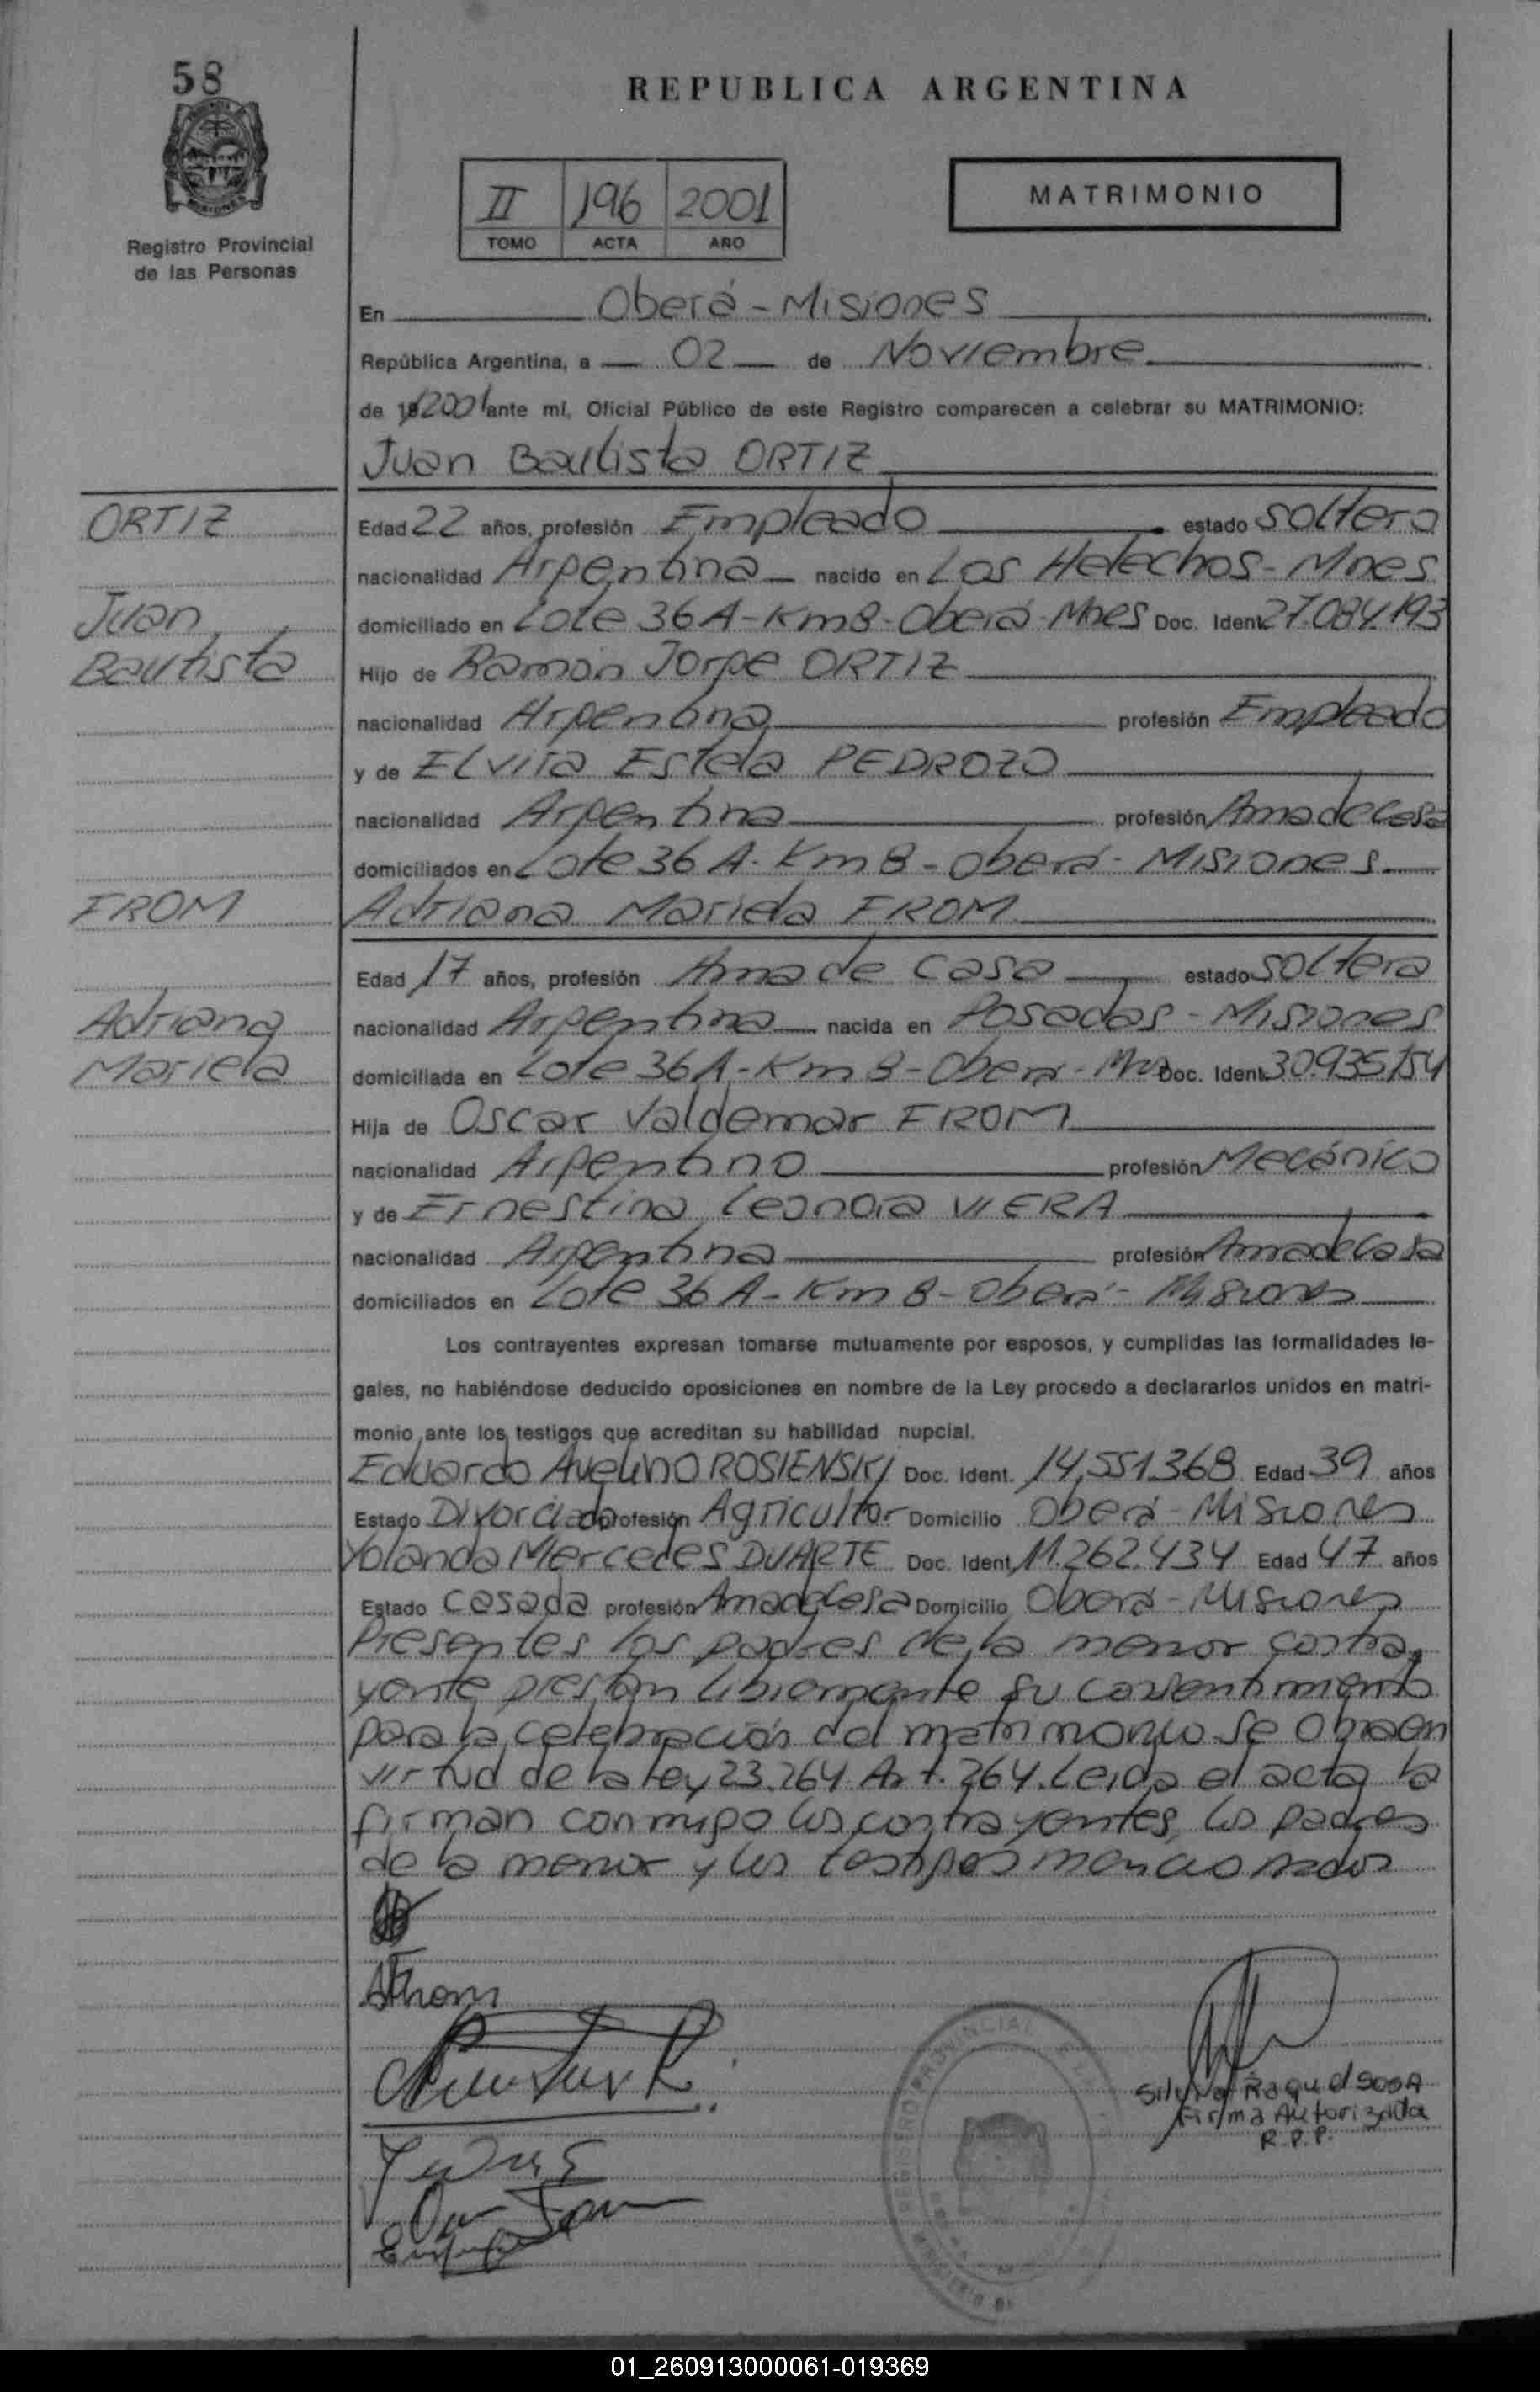 58
REPUBLICA ARGENTINA
Registro Provincial
de las Personas
II 196 2001
TOMO ACTA AÑO
MATRIMONIO
En Oberá - Misiones
República Argentina, a 02 de Noviembre
de 19 2001 ante mí, Oficial Público de este Registro comparecen a celebrar su MATRIMONIO:
Juan Bautista ORTIZ
ORTIZ
Juan
Bautista
Edad 22 años, profesión Empleado estado soltero
nacionalidad Argentina nacido en Los Helechos - Mnes
domiciliado en Lote 36 A - Km 8 - Oberá - Mnes Doc. Ident. 27.084.193
Hijo de Ramón Jorge ORTIZ
nacionalidad Argentina profesión Empleado
y de Elvira Estela PEDROZO
nacionalidad Argentina profesión Ama de Casa
domiciliados en Lote 36 A - Km 8 - Oberá - Misiones
FROM
Adriana
Mariela
Adriana Mariela FROM
Edad 17 años, profesión Ama de Casa estado soltera
nacionalidad Argentina nacida en Posadas - Misiones
domiciliada en Lote 36 A - Km 8 - Oberá - Mnes Doc. Ident. 30.935.154
Hija de Oscar Valdemar FROM
nacionalidad Argentino profesión Mecánico
y de Ernestina Leonora VIERA
nacionalidad Argentina profesión Ama de Casa
domiciliados en Lote 36 A - Km 8 - Oberá - Misiones
Los contrayentes expresan tomarse mutuamente por esposos, y cumplidas las formalidades le-
gales, no habiéndose deducido oposiciones en nombre de la Ley procedo a declararlos unidos en matri-
monio ante los testigos que acreditan su habilidad nupcial.
Eduardo Avelino ROSIENSKI Doc. Ident. 14.551.368 Edad 39 años
Estado Divorciado profesión Agricultor Domicilio Oberá - Misiones
Yolanda Mercedes DUARTE Doc. Ident. 11.262.434 Edad 47 años
Estado Casada profesión Ama de Casa Domicilio Oberá - Misiones
Presentes los padres de la menor contra
yente prestan libremente su consentimiento
para la celebración del matrimonio se obra en
virtud de la Ley 23.264 Art. 264. Leida el acta la
firman conmigo los contrayentes, los padres
de la menor y los testigos mencionados
AFrom
Silvia Raquel SOSA
Firma Autorizada
R.P.P.
REGISTRO PROVINCIAL
01_260913000061-019369